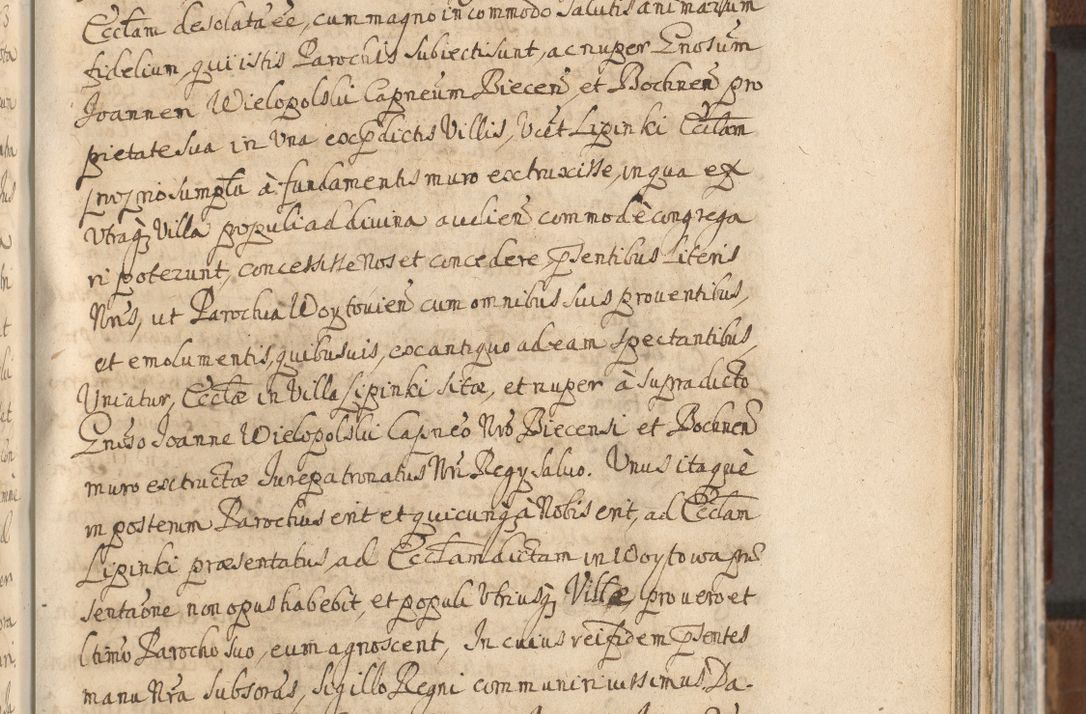 Ecclam desolata ee, cum magno incommodo Salutis animarum
fidelium, qui istis Parochis subiecti sunt, ac nuper Gnosum
Joannem Wielopolski Capneum Biecen, et Bochnen pro
pietate sua in Una ex pdictis Villis, Vcet Lipinki Ecclam
proprio sumptu à fundamentis muro extruxisse, in qua ex
Utraq; Villa populi ad divina audien commodè congrega
ri poterunt, concessisse Nos et concedere pfsentibus Literis
Nris, ut Parochia Woytovien cum omnibus suis proventibus,
et emolumentis, quibusuis, ex antiquo ad eam spectantibus,
Uniatur, Ecclæ in Villa Lipinki sitæ, et nuper à supradicto
Gnoso Joanne Wielopolski Capneo Nro Biecensi et Bochnen
muro extructæ Jure patronatus Nri Regy saluo. Unus itaquè
in posterum Parochus erit et quicunq; à Nobis erit, ad Ecclam
Lipinki præsentatus, ad Ecclam dictam in Woytowa pre
sentaone non opus habebit, et populi Utriusq; Villæ, pro vero et
ltimo Parocho suo, eum agnoscent, In cuius rei fidem pfsentes
manu Nra subscras, sigillo Regni communiri iussimus Da-